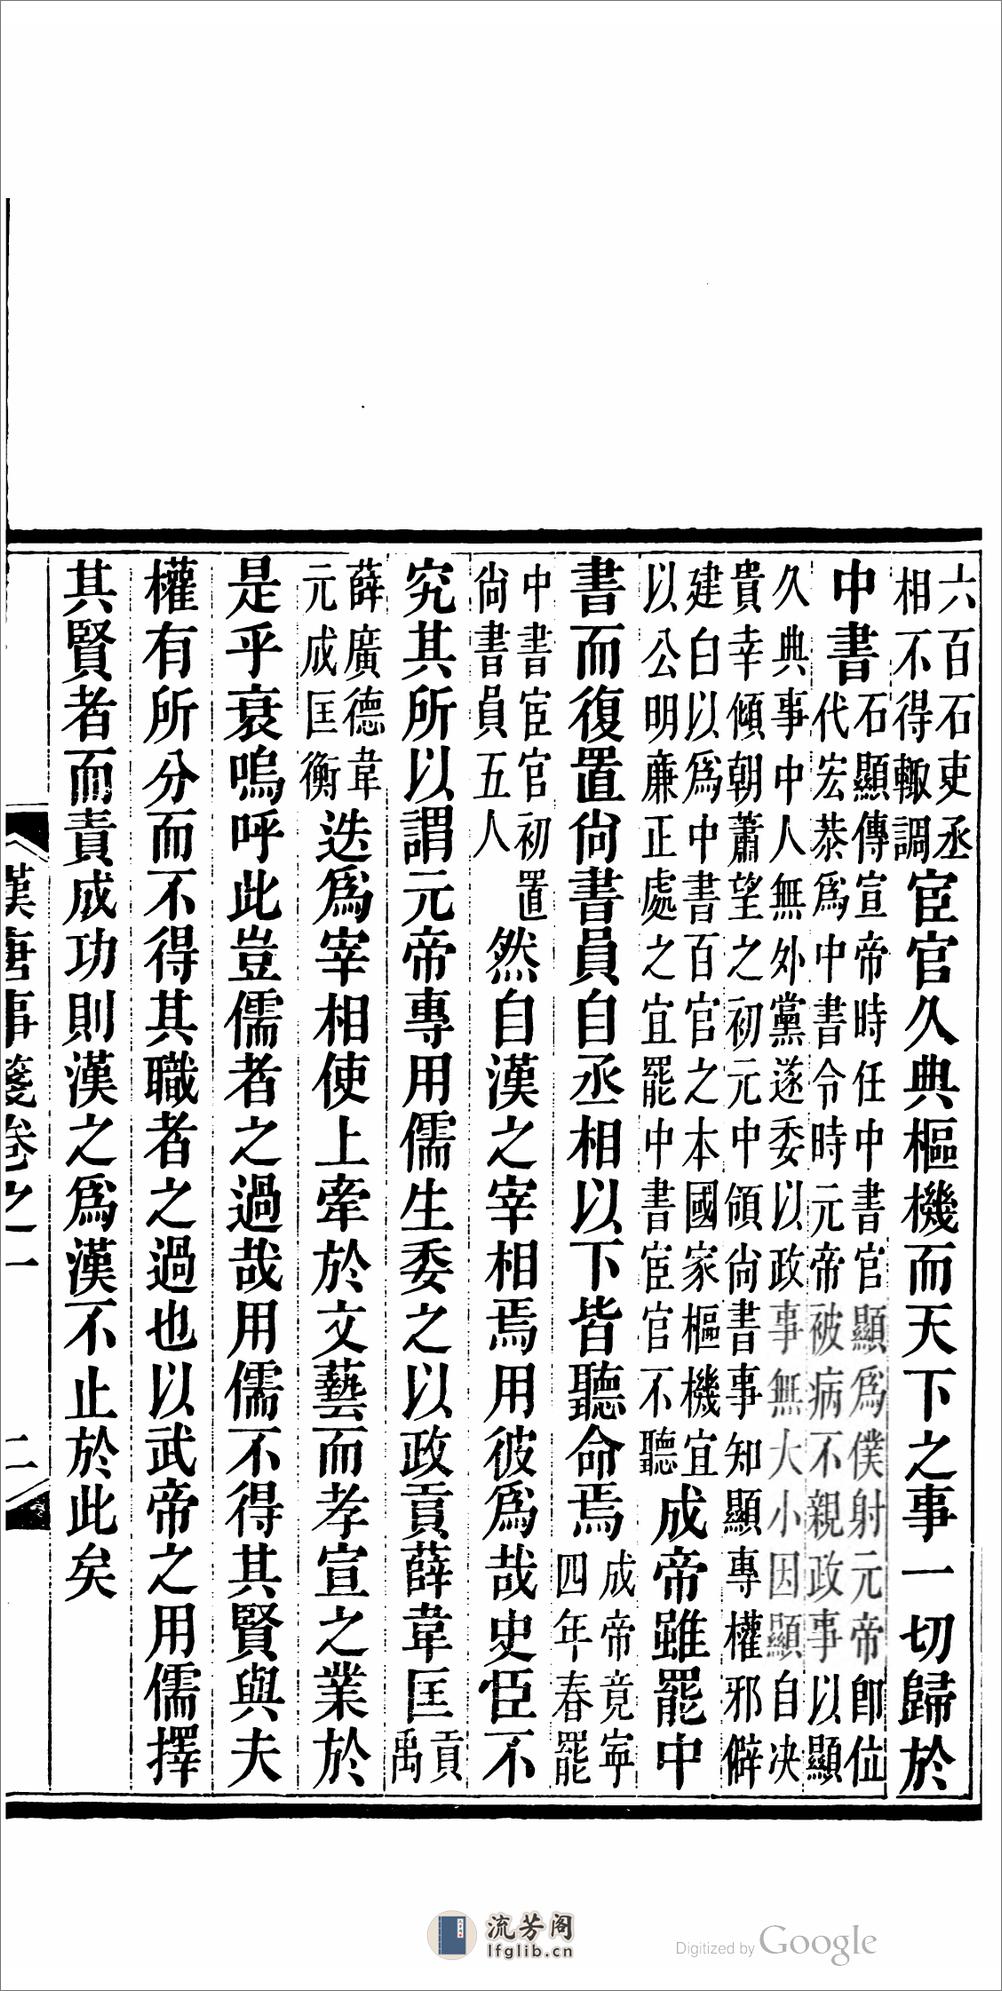 六百石吏丞
相不得輒調
宦官久典樞機而天下之事一切歸於
中書
石顯傳宣帝時任中書官顯爲僕射元帝卽位
代宏恭爲中書令時元帝被病不親政事以顯
久典事中人無外黨遂委以政事無大小因顯自决
貴幸傾朝蕭望之初元中領尙書事知顯專權邪僻
建白以爲中書百官之本國家樞機宜
以公明廉正處之宜罷中書宦官不聽
成帝雖罷中
書而復置尙書員自丞相以下皆聽命焉
成帝竟寧
四年春罷
中書宦官初置
尙書員五人
然自漢之宰相焉用彼爲哉史臣不
究其所以謂元帝專用儒生委之以政貢薛韋匡
貢
禹
薛廣德韋
元成匡衡
迭爲宰相使上牽於文藝而孝宣之業於
是乎衰嗚呼此豈儒者之過哉用儒不得其賢與夫
權有所分而不得其職者之過也以武帝之用儒擇
其賢者而責成功則漢之爲漢不止於此矣
漢唐事箋卷之一
二
流芳阁
lfglib.cn
Digitized by Google